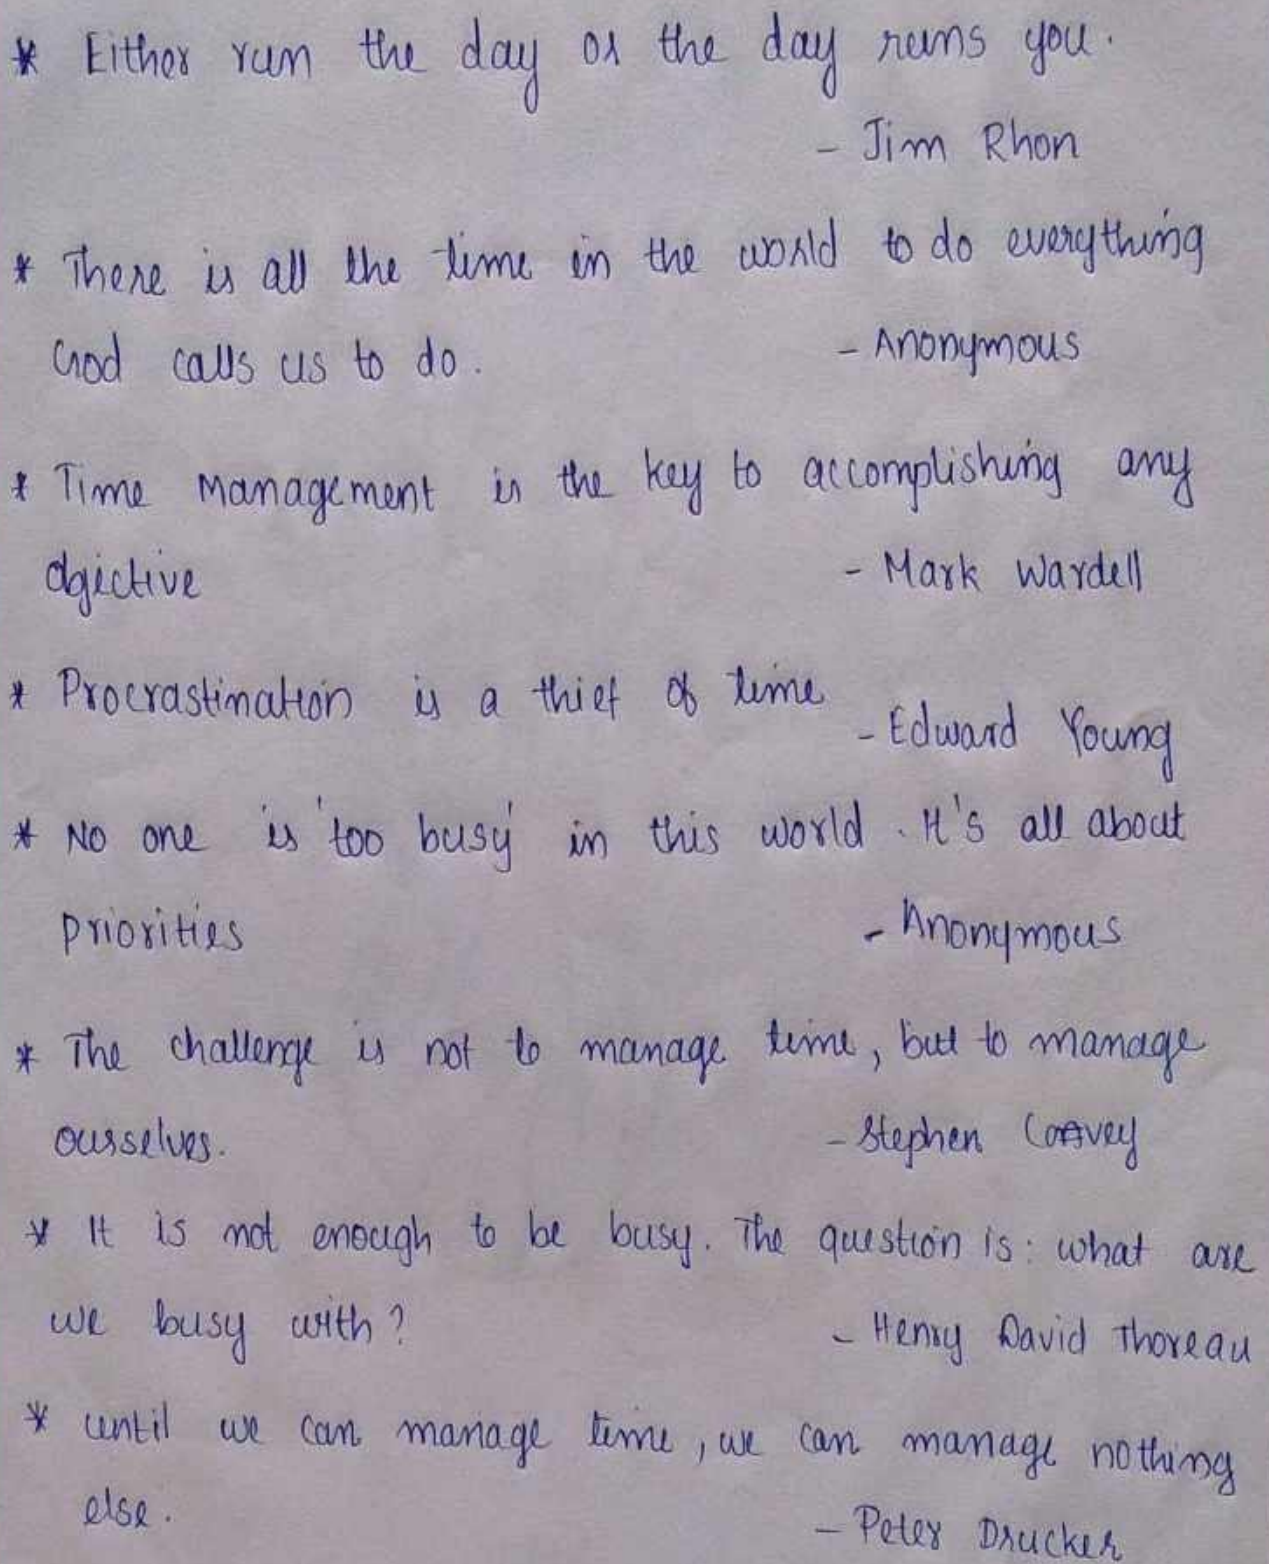 * Either run the day or the day runs you.
- Jim Rhon
* There is all the time in the world to do everything
God calls us to do.
- Anonymous
* Time management is the key to accomplishing any
objective
- Mark Wardell
* Procrastination is a thief of time
- Edward Young
* No one is 'too busy' in this world. It's all about
priorities
- Anonymous
* The challenge is not to manage time, but to manage
ourselves.
- Stephen Covey
* It is not enough to be busy. The question is: what are
we busy with?
- Henry David Thoreau
* until we can manage time, we can manage nothing
else.
- Peter Drucker